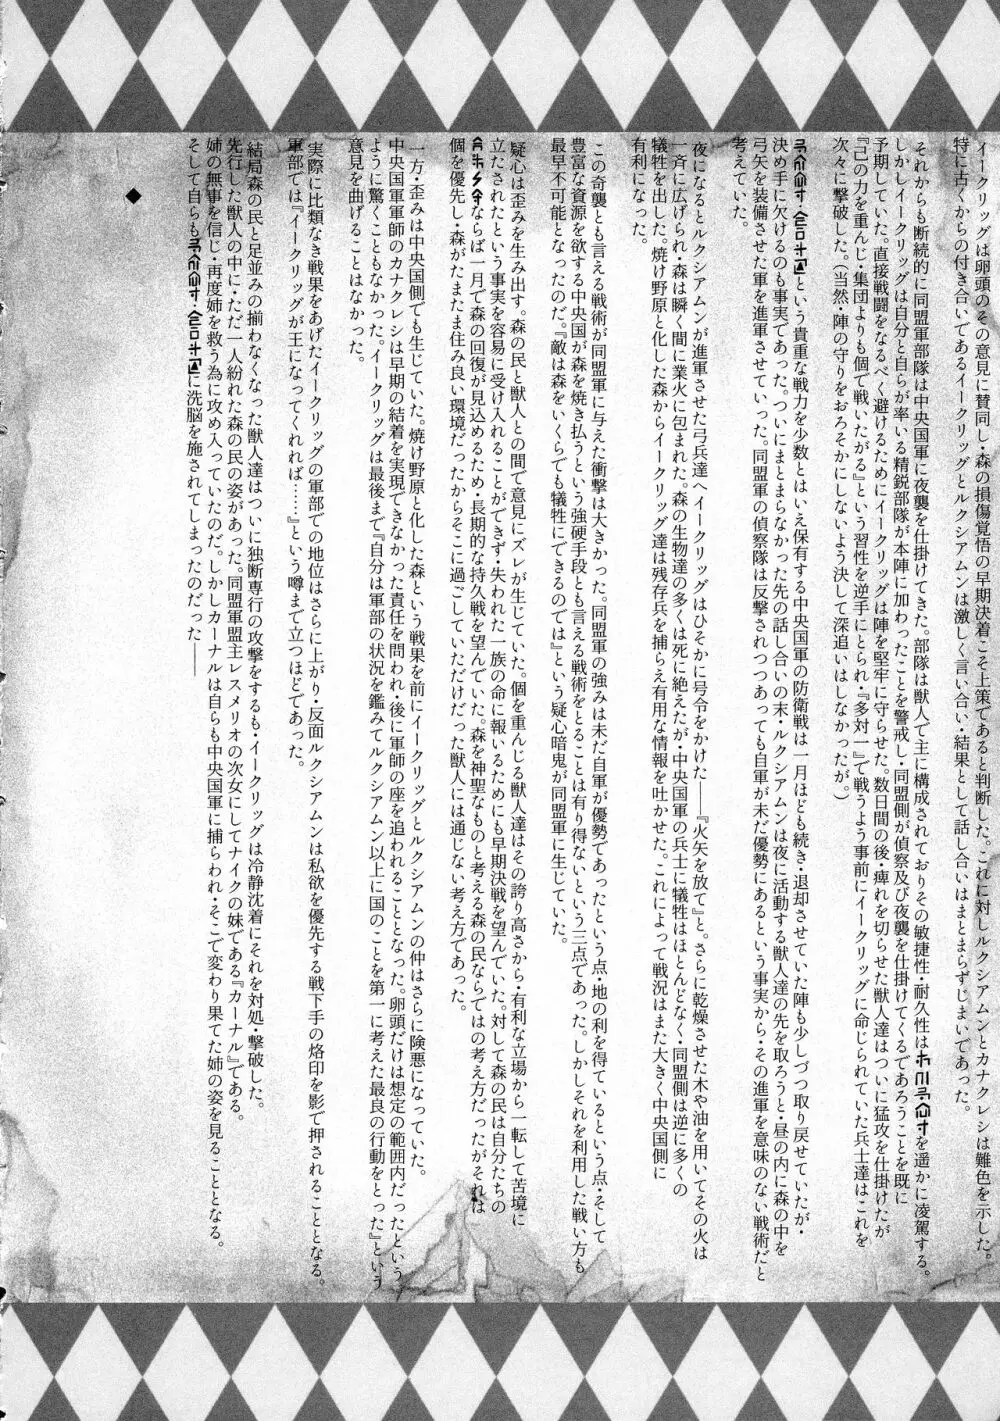 イークリッグは卵頭のその意見に賛同し・森の損傷覚悟の早期決着こそ上策であると判断した。これに対しルクシアムンとカナクレシは難色を示した。
特に古くからの付き合いであるイークリッグとルクシアムンは激しく言い合い・結果として話し合いはまとまらずじまいであった。
それからも断続的に同盟軍部隊は中央国軍に夜襲を仕掛けてきた。部隊は獣人で主に構成されておりその敏捷性・耐久性は
を遥かに凌駕する。
しかしイークリッグは自分と自らが率いる精鋭部隊が本陣に加わったことを警戒し・同盟側が偵察及び夜襲を仕掛けてくるであろうことを既に
予期していた。直接戦闘をなるべく避けるためにイークリッグは陣を堅牢に守らせた。数日間の後・痺れを切らせた獣人達はついに猛攻を仕掛けたが
『己の力を重んじ・集団よりも個で戦いたがる』という習性を逆手にとられ・『多対一』で戦うよう事前にイークリッグに命じられていた兵士達はこれを
次々に撃破した。（当然・陣の守りをおろそかにしないよう決して深追いはしなかったが。）
という貴重な戦力を少数とはいえ保有する中央国軍の防衛戦は一月ほども続き・退却させていた陣も少しづつ取り戻せていたが・
決め手に欠けるのも事実であった。ついにまとまらなかった先の話し合いの末・ルクシアムンは夜に活動する獣人達の先を取ろうと・昼の内に森の中を
弓矢を装備させた軍を進軍させていった。同盟軍の偵察隊は反撃されつつあっても自軍が未だ優勢にあるという事実から・その進軍を意味のない戦術だと
考えていた。
夜になるとルクシアムンが進軍させた弓兵達へイークリッグはひそかに号令をかけた――『火矢を放て』と。さらに乾燥させた木や油を用いてその火は
一斉に広げられ・森は瞬く間に業火に包まれた。森の生物達の多くは死に絶えたが・中央国軍の兵士に犠牲はほとんどなく・同盟側は逆に多くの
犠牲を出した。焼け野原と化した森からイークリッグ達は残存兵を捕らえ有用な情報を吐かせた。これによって戦況はまた大きく中央国側に
有利になった。
この奇襲とも言える戦術が同盟軍に与えた衝撃は大きかった。同盟軍の強みは未だ自軍が優勢であったという点・地の利を得ているという点・そして
豊富な資源を欲する中央国が森を焼き払うという強硬手段とも言える戦術をとることは有り得ないという三点であった。しかしそれを利用した戦い方も
最早不可能となったのだ。『敵は森をいくらでも犠牲にできるのでは』という疑心暗鬼が同盟軍に生じていた。
疑心は歪みを生み出す。森の民と獣人との間で意見にズレが生じていた。個を重んじる獣人達はその誇り高さから・有利な立場から一転して苦境に
立たされたという事実を容易に受け入れることができず・失われた一族の命に報いるためにも早期決戦を望んでいた。対して森の民は自分たちの
ならば一月で森の回復が見込めるため・長期的な持久戦を望んでいた。森を神聖なものと考える森の民ならではの考え方だったがそれは
個を優先し・森がたまたま住み良い環境だったからそこに過ごしていただけだった獣人には通じない考え方であった。
一方・歪みは中央国側でも生じていた。焼け野原と化した森という戦果を前にイークリッグとルクシアムンの仲はさらに険悪になっていた。
中央国軍軍師のカナクレシは早期の結着を実現できなかった責任を問われ・後に軍師の座を追われることとなった。卵頭だけは想定の範囲内だったという
ように驚くこともなかった。イークリッグは最後まで『自分は軍部の状況を鑑みてルクシアムン以上に国のことを第一に考えた最良の行動をとった』という
意見を曲げることはなかった。
実際に比類なき戦果をあげたイークリッグの軍部での地位はさらに上がり・反面ルクシアムンは私欲を優先する戦下手の烙印を影で押されることとなる。
軍部では『イークリッグが王になってくれれば……』という噂まで立つほどであった。
結局森の民と足並みの揃わなくなった獣人達はついに独断専行の攻撃をするも・イークリッグは冷静沈着にそれを対処・撃破した。
先行した獣人の中に・ただ一人紛れた森の民の姿があった。同盟軍盟主レスメリオの次女にしてナイクの妹である『カーナル』である。
姉の無事を信じ・再度姉を救う為に攻め入っていたのだ。しかしカーナルは自らも中央国軍に捕らわれ・そこで変わり果てた姉の姿を見ることとなる。
そして自らも
に洗脳を施されてしまったのだった――
◆